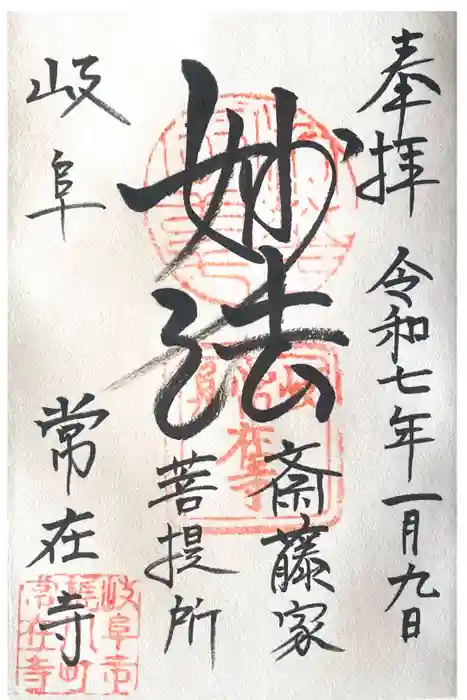 奉拝 令和七年一月九日
妙法
斎藤家
菩提所
岐阜 常在寺
岐阜
常在寺
岐阜市
常在寺